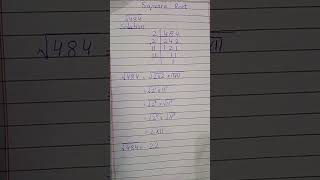 Square Root
√484
Solution
2 | 484
2 | 242
11 | 121
11 | 11
1
√484 = √2×2×11×11
= √2²×11²
= √2²×√11²
= 2×11
√484 = 22
√484 =